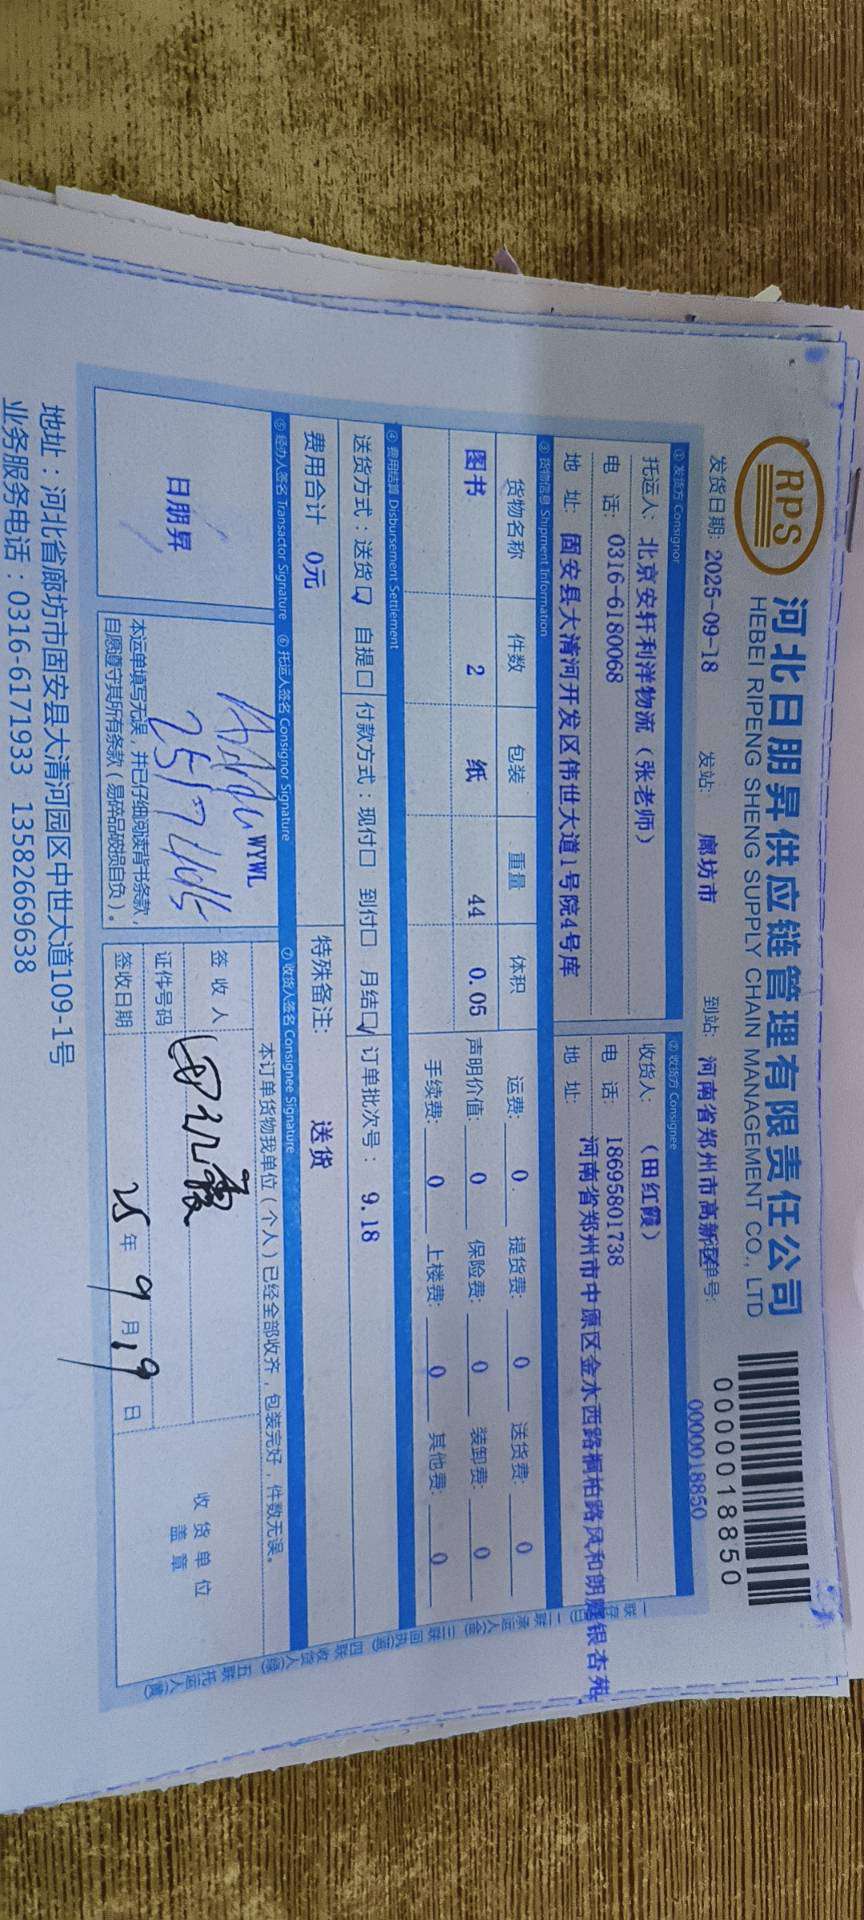 RPS
河北日朋昇供应链管理有限责任公司
HEBEI RIPENG SHENG SUPPLY CHAIN MANAGEMENT CO., LTD
0000018850
0000018850
发货日期: 2025-09-18 发站: 廊坊市 到站: 河南省郑州市高新区 单号:
① 发货方 Consignor
托运人: 北京安轩利洋物流（张老师）
电 话: 0316-6180068
地 址: 固安县大清河开发区伟世大道1号院4号库
② 收货方 Consignee
收货人: （田红霞）
电 话: 18695801738
地 址: 河南省郑州市中原区金水西路桐柏路风和朗庭银杏苑
③ 货物信息 Shipment Information
货物名称 件数 包装 重量 体积
图书 2 纸 44 0.05
运费: 0 提货费: 0 送货费: 0
声明价值: 0 保险费: 0 装卸费: 0
手续费: 0 上楼费: 0 其他费: 0
④ 费用结算 Disbursement Settlement
送货方式：送货☑ 自提□ 付款方式：现付□ 到付□ 月结☑ 订单批次号： 9.18
费用合计 0元 特殊备注: 送货
⑤ 经办人签名 Transactor Signature
日朋昇
⑥ 托运人签名 Consignor Signature
WYWL
本运单填写无误，并已仔细阅读背书条款，
自愿遵守其所有条款（易碎品破损自负）。
⑦ 收货人签名 Consignee Signature
本订单货物我单位（个人）已经全部收齐，包装完好，件数无误。
签 收 人 田红霞
证件号码
签收日期 25 年 9 月 19 日
收 货 单 位
盖 章
地址：河北省廊坊市固安县大清河园区中世大道109-1号
业务服务电话：0316-6171933 13582669638